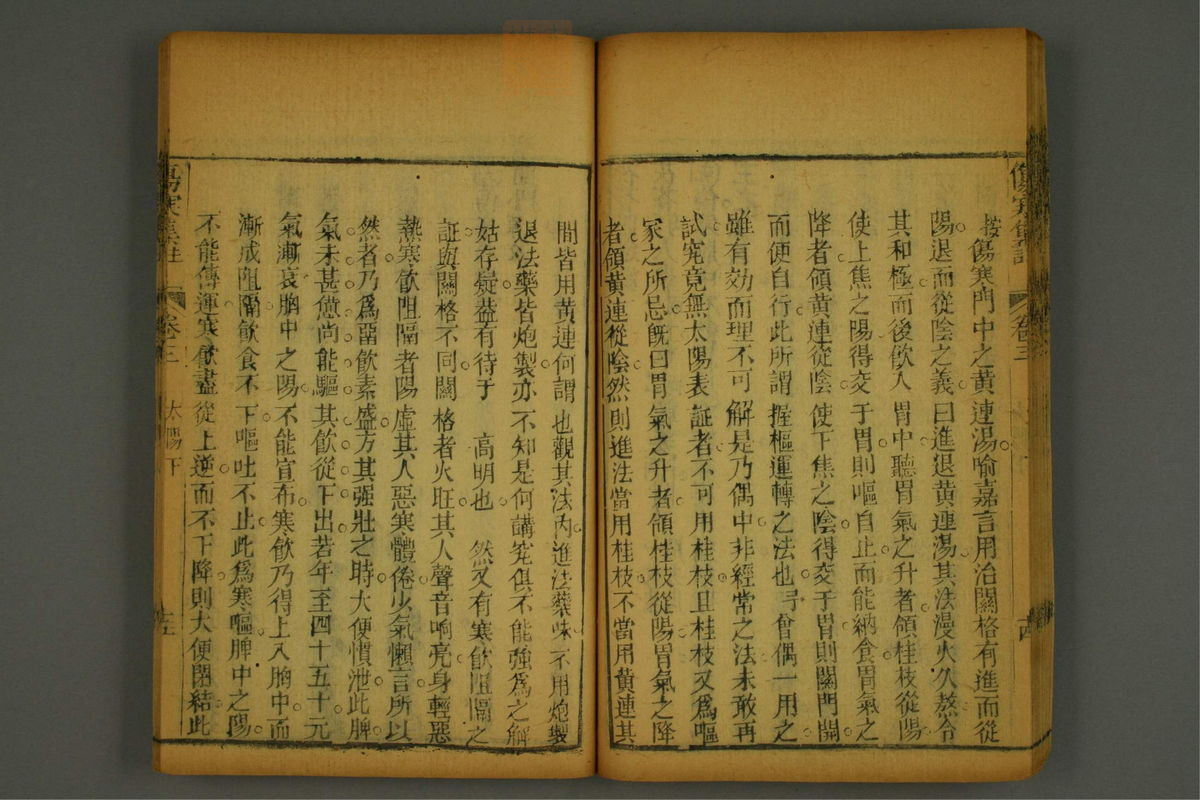 按傷寒門中之黃連湯喻嘉言用治關格有進而從
陽退而從陰之義曰進退黃連湯其法漫火久熬令
其和極而後飲人胃中聽胃氣之升者領桂枝從陽
使上焦之陽得交于胃則嘔自止而能納食胃氣之
降者領黃連從陰使下焦之陰得交于胃則關門開
而便自行此所謂握樞運轉之法也予曾偶一用之
雖有効而理不可解是乃偶中非經常之法未敢再
試究竟無太陽表証者不可用桂枝且桂枝又爲嘔
家之所忌既曰胃氣之升者領桂枝從陽胃氣之降
者領黃連從陰然則進法當用桂枝不當用黃連其
間皆用黃連何謂也觀其法內進法藥味不用炮製
退法藥皆炮製亦不知是何講究俱不能強爲之解
姑存疑葢有待于 高明也 然又有寒飲阻隔之
証與關格不同關格者火旺其人聲音响亮身輕惡
熱寒飲阻隔者陽虛其人惡寒體倦少氣懶言所以
然者乃爲畱飲素盛方其强壯之時大便慣泄此脾
氣未甚憊尚能驅其飲從下出若年至四十五十元
氣漸衰胸中之陽不能宣布寒飲乃得上入胸中而
漸成阻隔飲食不下嘔吐不止此爲寒嘔脾中之陽
不能傳運寒飲盡從上逆而不下降則大便閉結此
卷三
太陽下